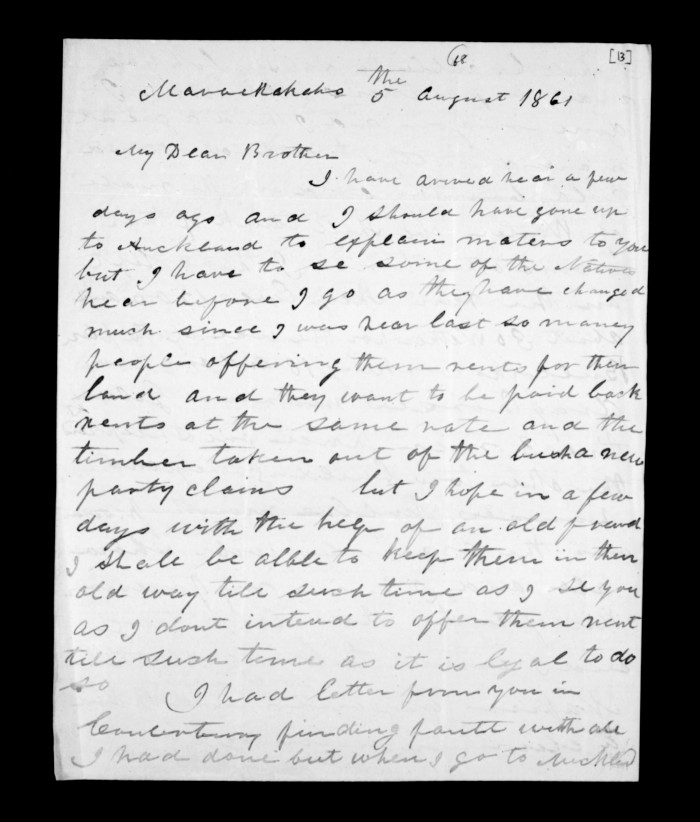 68
[13]
the
5 August 1861
My Dear Brother
I have arived hear a few
days ago and I should have gone up
to Auckland to explain maters to you
but I have to se some of the Natives
hear before I go as they have changed
much since I was hear last so maney
people offering them rents for their
land and they want to be paid back
rents at the same rate and the
timber taken out of the bush a new
party claims but I hope in a few
days with the help of an old friend
I shale be alble to keep them in their
old way till such time as I se you
as I dont intend to offer them rent
till such time as it is legal to do
so I had letter from you in
Canterbury finding fault with ale
I had done but when I go to Auckland